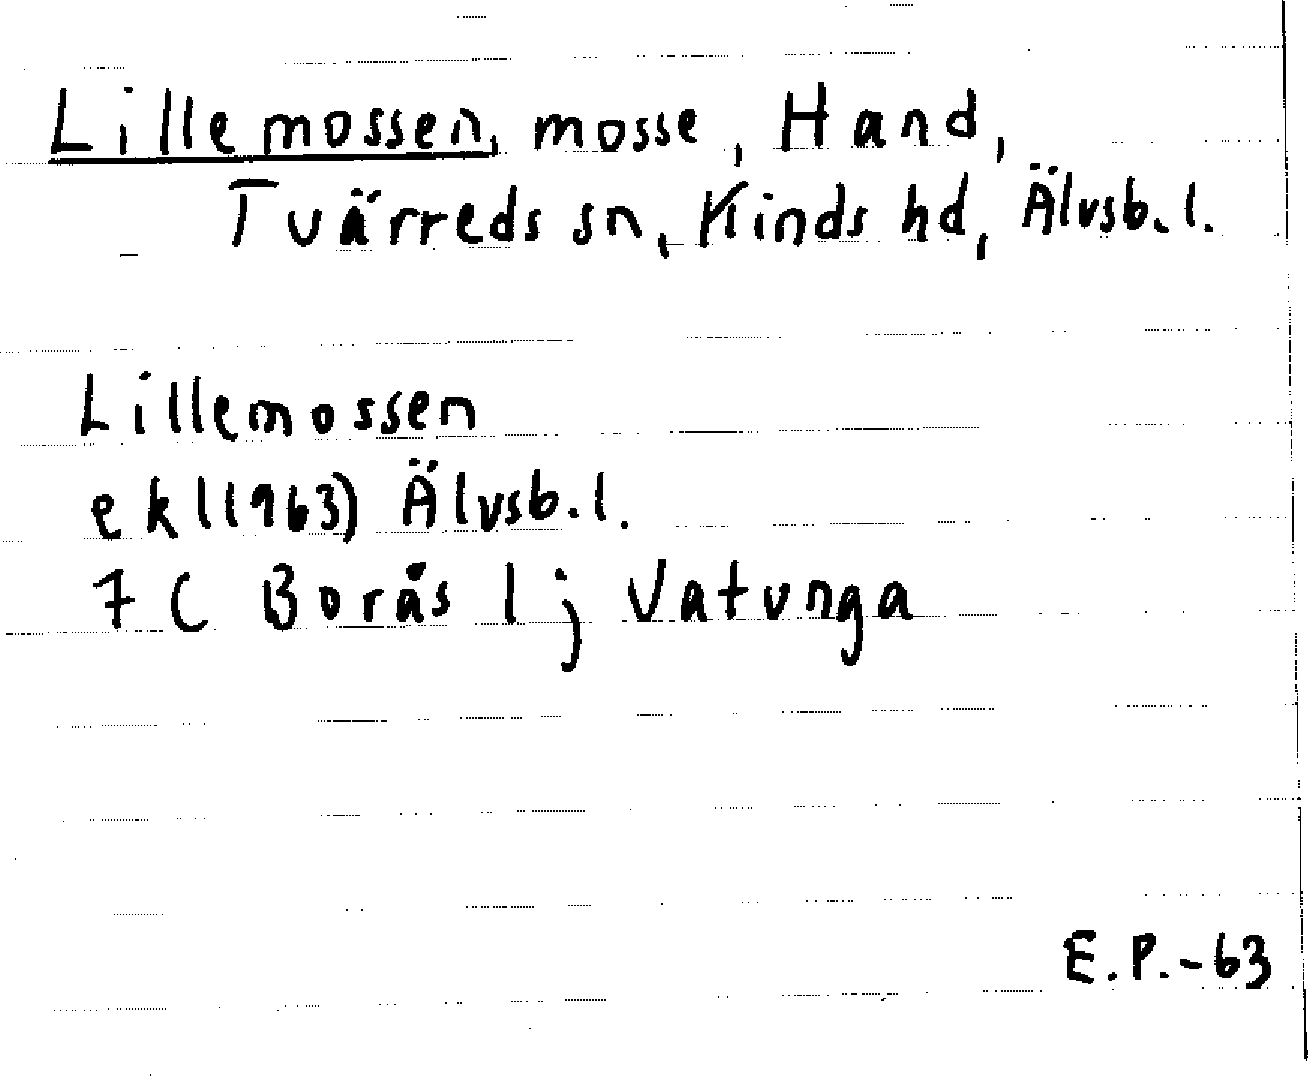 Lillemossen, mosse, Hand,
Tvärreds sn, Kinds hd, Älvsb. l.
Lillemossen
ekl(1963) Älvsb. l.
7 C Borås 1 j Vatunga
E.P.-63